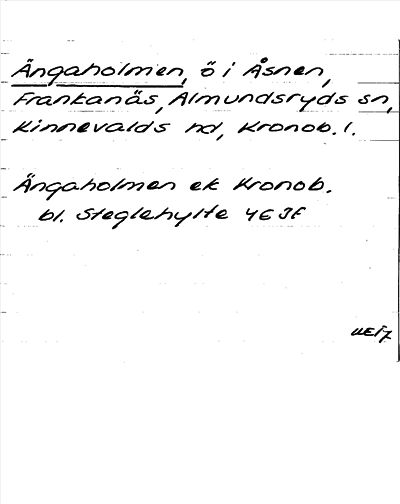 Ängaholmen, ö i Åsnen,
Frankanäs, Almundsryds sn,
Kinnevalds hd, Kronob. l.
Ängaholmen ek Kronob.
bl. Steglehylte 4E 3F